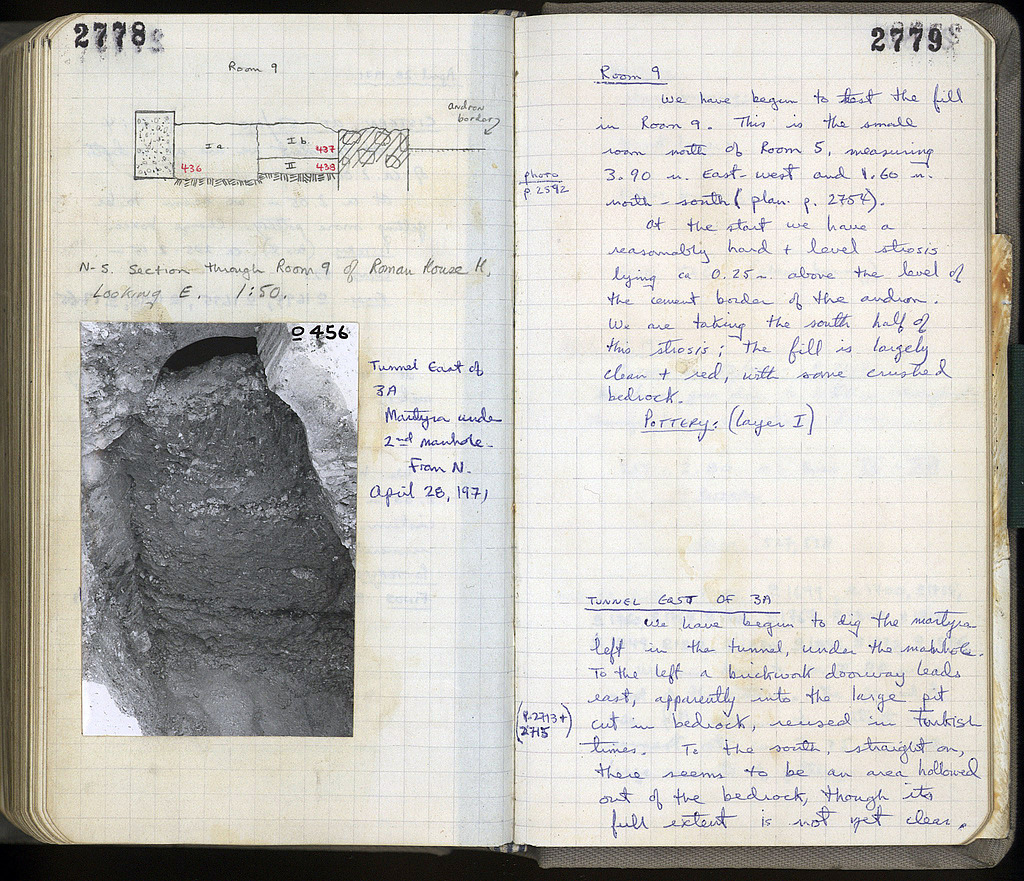 2778
Room 9
andron
border
I a
I b
437
436
II
438
N-S. Section through Room 9 of Roman House H,
Looking E. 1:50.
O 456
Tunnel East of
3A
Martyra under
2nd manhole.
From N.
April 28, 1971
2779
Room 9
We have begun to test the fill
in Room 9. This is the small
room north of Room 5, measuring
photo
p. 2592
3.90 m. East-west and 1.60 m.
north-south (plan. p. 2754).
At the start we have a
reasonably hard + level strosis
lying ca 0.25 m. above the level of
the cement border of the andron.
We are taking the south half of
this strosis; the fill is largely
clean + red, with some crushed
bedrock.
POTTERY: (layer I)
TUNNEL EAST OF 3A
We have begun to dig the martyra
left in the tunnel, under the manhole.
To the left a brickwork doorway leads
east, apparently into the large pit
(p. 2713 +
2715)
cut in bedrock, reused in Turkish
times. To the south, straight on,
there seems to be an area hollowed
out of the bedrock, though its
full extent is not yet clear.